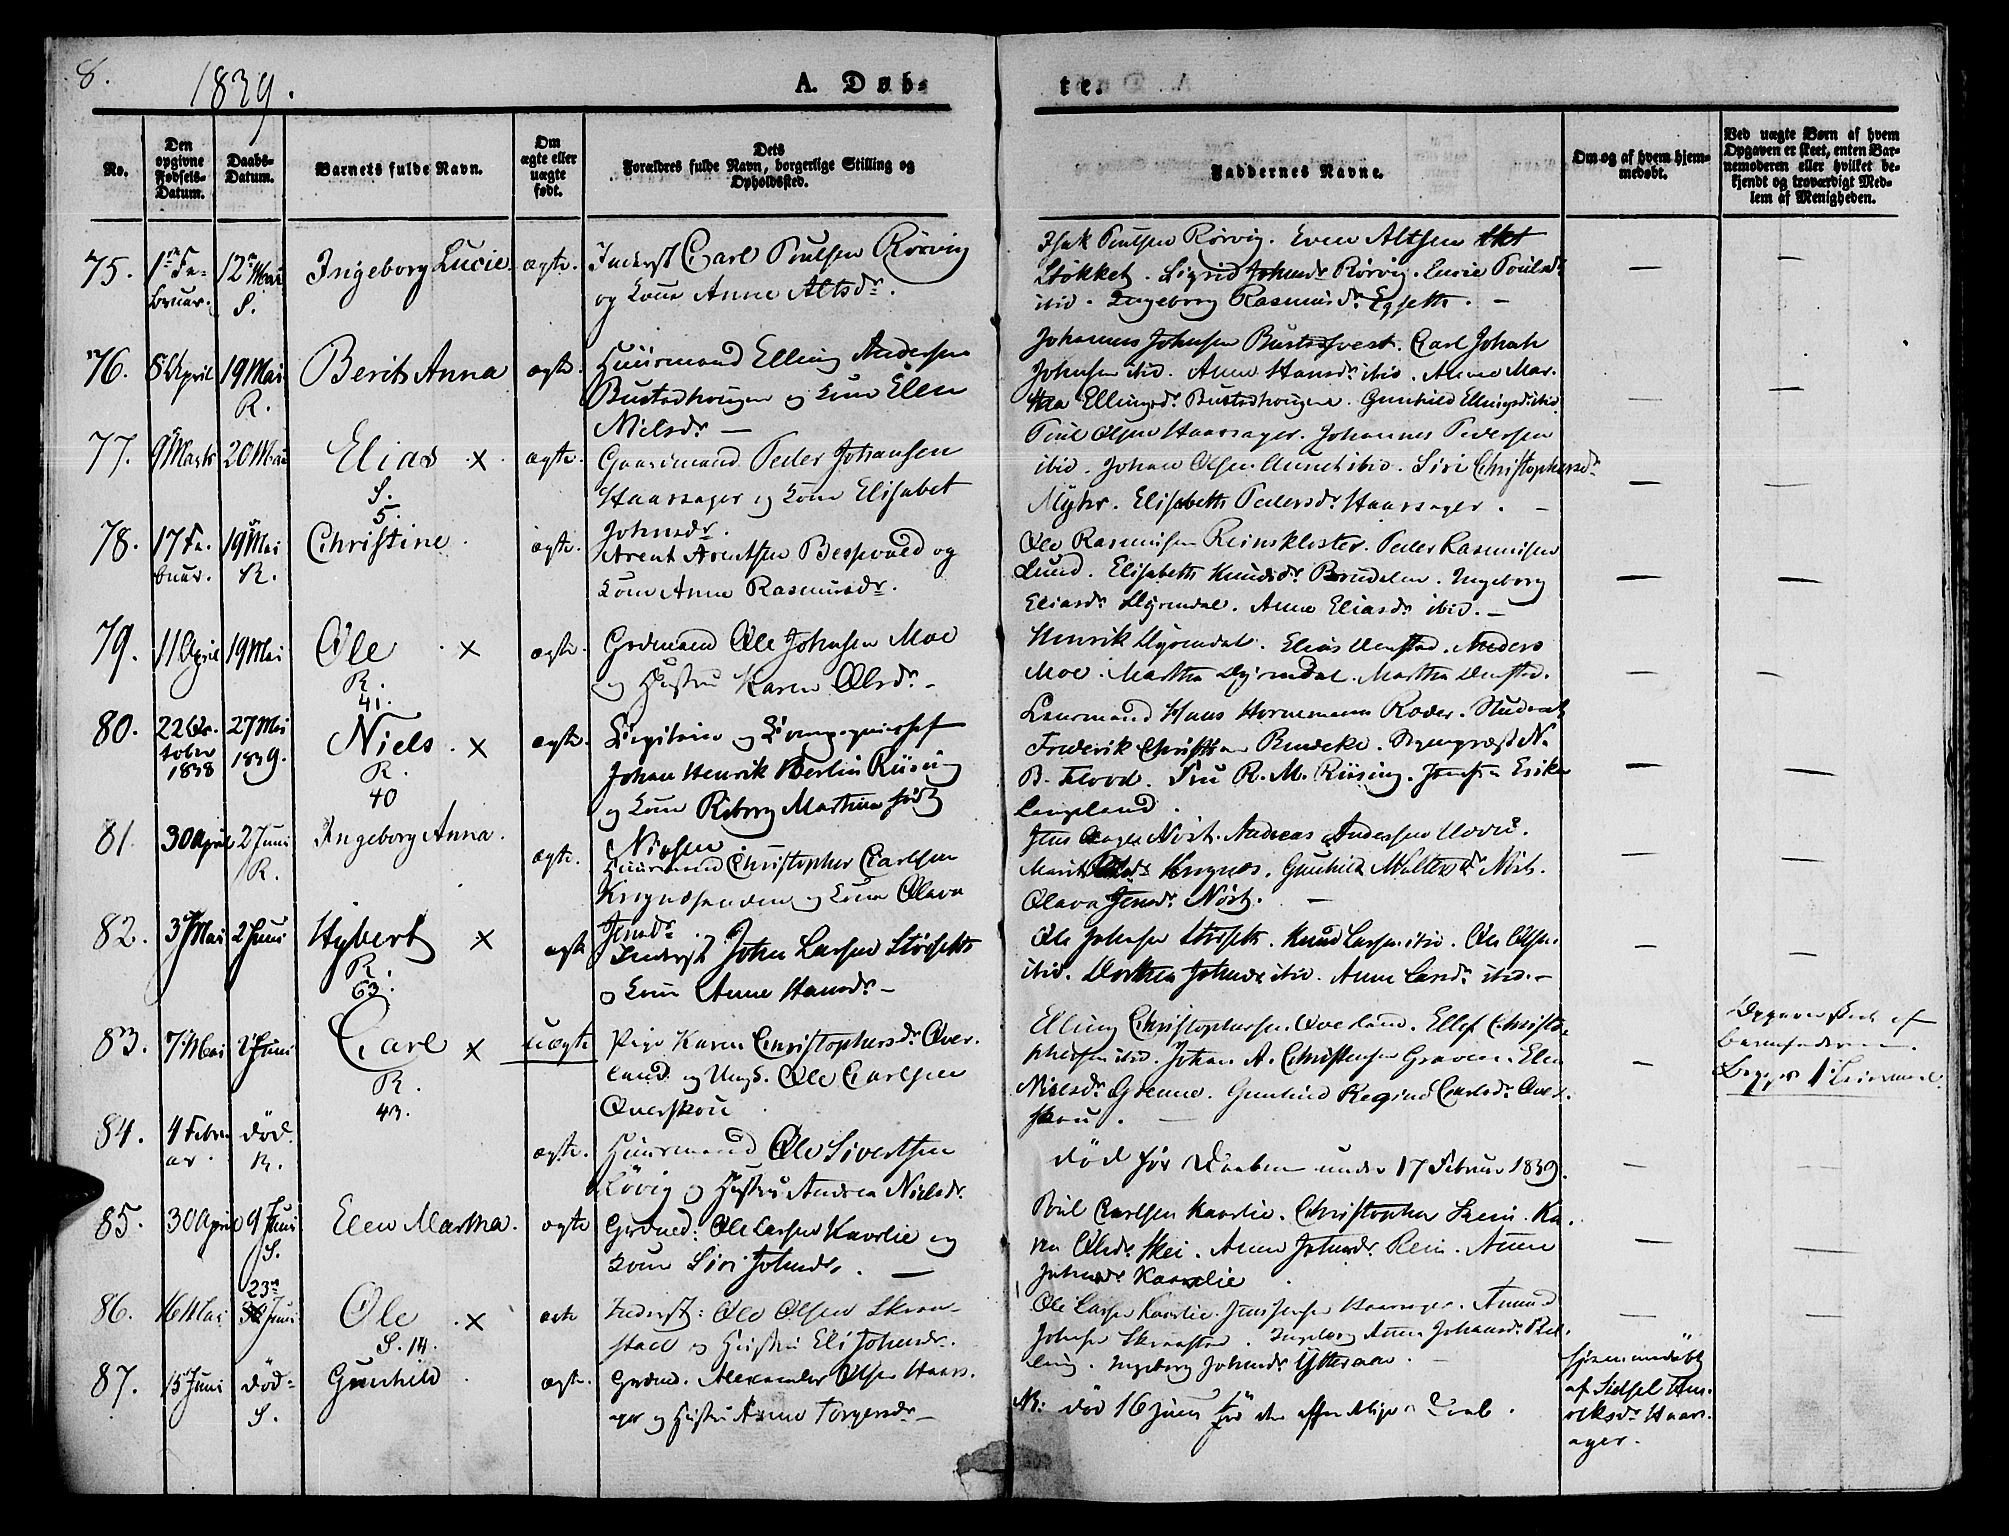 8.
1839.
A. Døb-
te.
No.
Den opgivne Fødsels-Datum.
Daabs-Datum.
Barnets fulde Navn.
Om ægte eller uægte født.
Dets Forældres fulde Navn, borgerlige Stilling og Opholdssted.
Faddernes Navne.
Om og af hvem hjemmedøbt.
Ved uægte Børn af hvem Opgaven er skeet, enten Barnemoderen eller hvilket bekjendt og troværdigt Medlem af Menigheden.
75.
1 Februar.
12 Mai
S.
Ingeborg Lucie
ægte.
Inderst Carl Poulsen Rörvig
og Kone Anne Altsdr.
Isak Poulsen Rörvig. Even Altsen
Stökket. Sigrid Johnsdr Rörvig. Lucie Poulsdr
ibid. Ingeborg Rasmusdr
76.
8 April
19 Mai
R.
Berit Anna
ægte.
Huusmand Elling Andersen
Bustadhougen og Kone Elen
Nielsdr —
Johannes Johnsen. Carl Johan
Johnsen ibid. Anne Hansdr ibid. Anne Mar-
tha Ellingsdr Bustadhougen. Gunhild Ellingsdr ibid.
77.
9 Marts
20 Mai
Elias x
S.
5.
ægte.
Gaardmand Peder Johansen
Haarsager og Kone Elisabet
Johnsdr.
Poul Olsen Haarsager. Johannes Pedersen
ibid. Johan Olsen ibid. Siri Christophersdr
Myhr. Elisabeth Pedersdr Haarsager.
78.
17 Februar.
19 Mai
R.
Christine.
ægte.
Arent Arentsen Bessvold og
Kone Anne Rasmusdr.
Ole Rasmusen Reinskloster. Peder Rasmusen
Lund. Elisabeth Knudsdr. Ingeborg
Eliasdr Dyrendal. Anne Eliasdr ibid. —
79.
11 April
19 Mai
Ole x
R.
41.
ægte.
Grdmand Ole Johnsen Moe
og Hustru Karen Olsdr. -
Henrik Dyrendal. Elias. Anders
Moe. Martha Dyrendal. Martha
80.
22 October 1838
27 Mai
1839.
Niels. x
R.
40
ægte.
og
Johan Henrik Berlin Riising
og Kone Riborg Martine født
Nielsen
Lensmand Hans Hornemann. Student
Frederik Christian N.
B. Flood. Fru R. M. Riising. Jomfru
81.
30 April
2 Juni
R.
Ingeborg Anna.
ægte.
Huusmand Christopher Carlsen
og Kone Olava
Jensdr.
Andreas Andersen
Olava Jensdr
82.
3 Mai
2 Juni
Hybert x
R.
63.
ægte
Inderst John Larsen Störseth
og Kone Anne Hansdr —
Ole Johnsen Störseth. Knud Larsen ibid. Ole Olsen
ibid. Dorthea Johnsdr ibid. Anne Larsdr ibid. —
83.
7 Mai
2 Juni
Carl x
R.
43.
uægte
Pige Karen Christophersdr Over-
land og Ungk. Ole Carlsen
Overskou
Elling Christophersen Overland. Ellef Christo-
phersen ibid. Johan A. Christensen Graven. Elen
Nielsdr. Gunhild Regine Carlsdr Over-
skou. —
Opgaven skeet af
Barnefaderen.
Begges 1ste Leiermaal.
84.
4 Februar.
död.
R.
ægte.
Huusmand Ole Sivertsen
Lövig og Hustru Andrea Nielsdr.
död för Daaben under 17 Februar 1839.
85.
30 April
9 Juni
S.
Elen Martha.
ægte
Grdmd: Ole Larsen Kaarlie og
Kone Siri Johnsdr. —
Poul Carlsen Kaarlie. Christopher. Ka-
ren Olsdr Skei. Anne Johnsdr Rein. Anne
Johnsdr Kaarlie
86.
16 Mai
23 Juni
Ole x
S. 14.
ægte
Inderst: Ole Olsen Skraa-
stad og Hustru Eli Johnsdr.
Ole Larsen Kaarlie. Jens Jensen Haarsager. Amund
Johnsen Skraastad. Ingeborg Anne Johansdr
Ingeborg Johnsdr Ytteraae. —
87.
15 Juni
död
S.
Gunhild
ægte.
Grdmd. Alexander Olsen Haars-
ager og Hustru Anne Torgersdr —
NB: död 16 Juni för den offentlige Daab.
hjemmedöbt
af Sidsel Hen-
riksdr Haars-
ager.